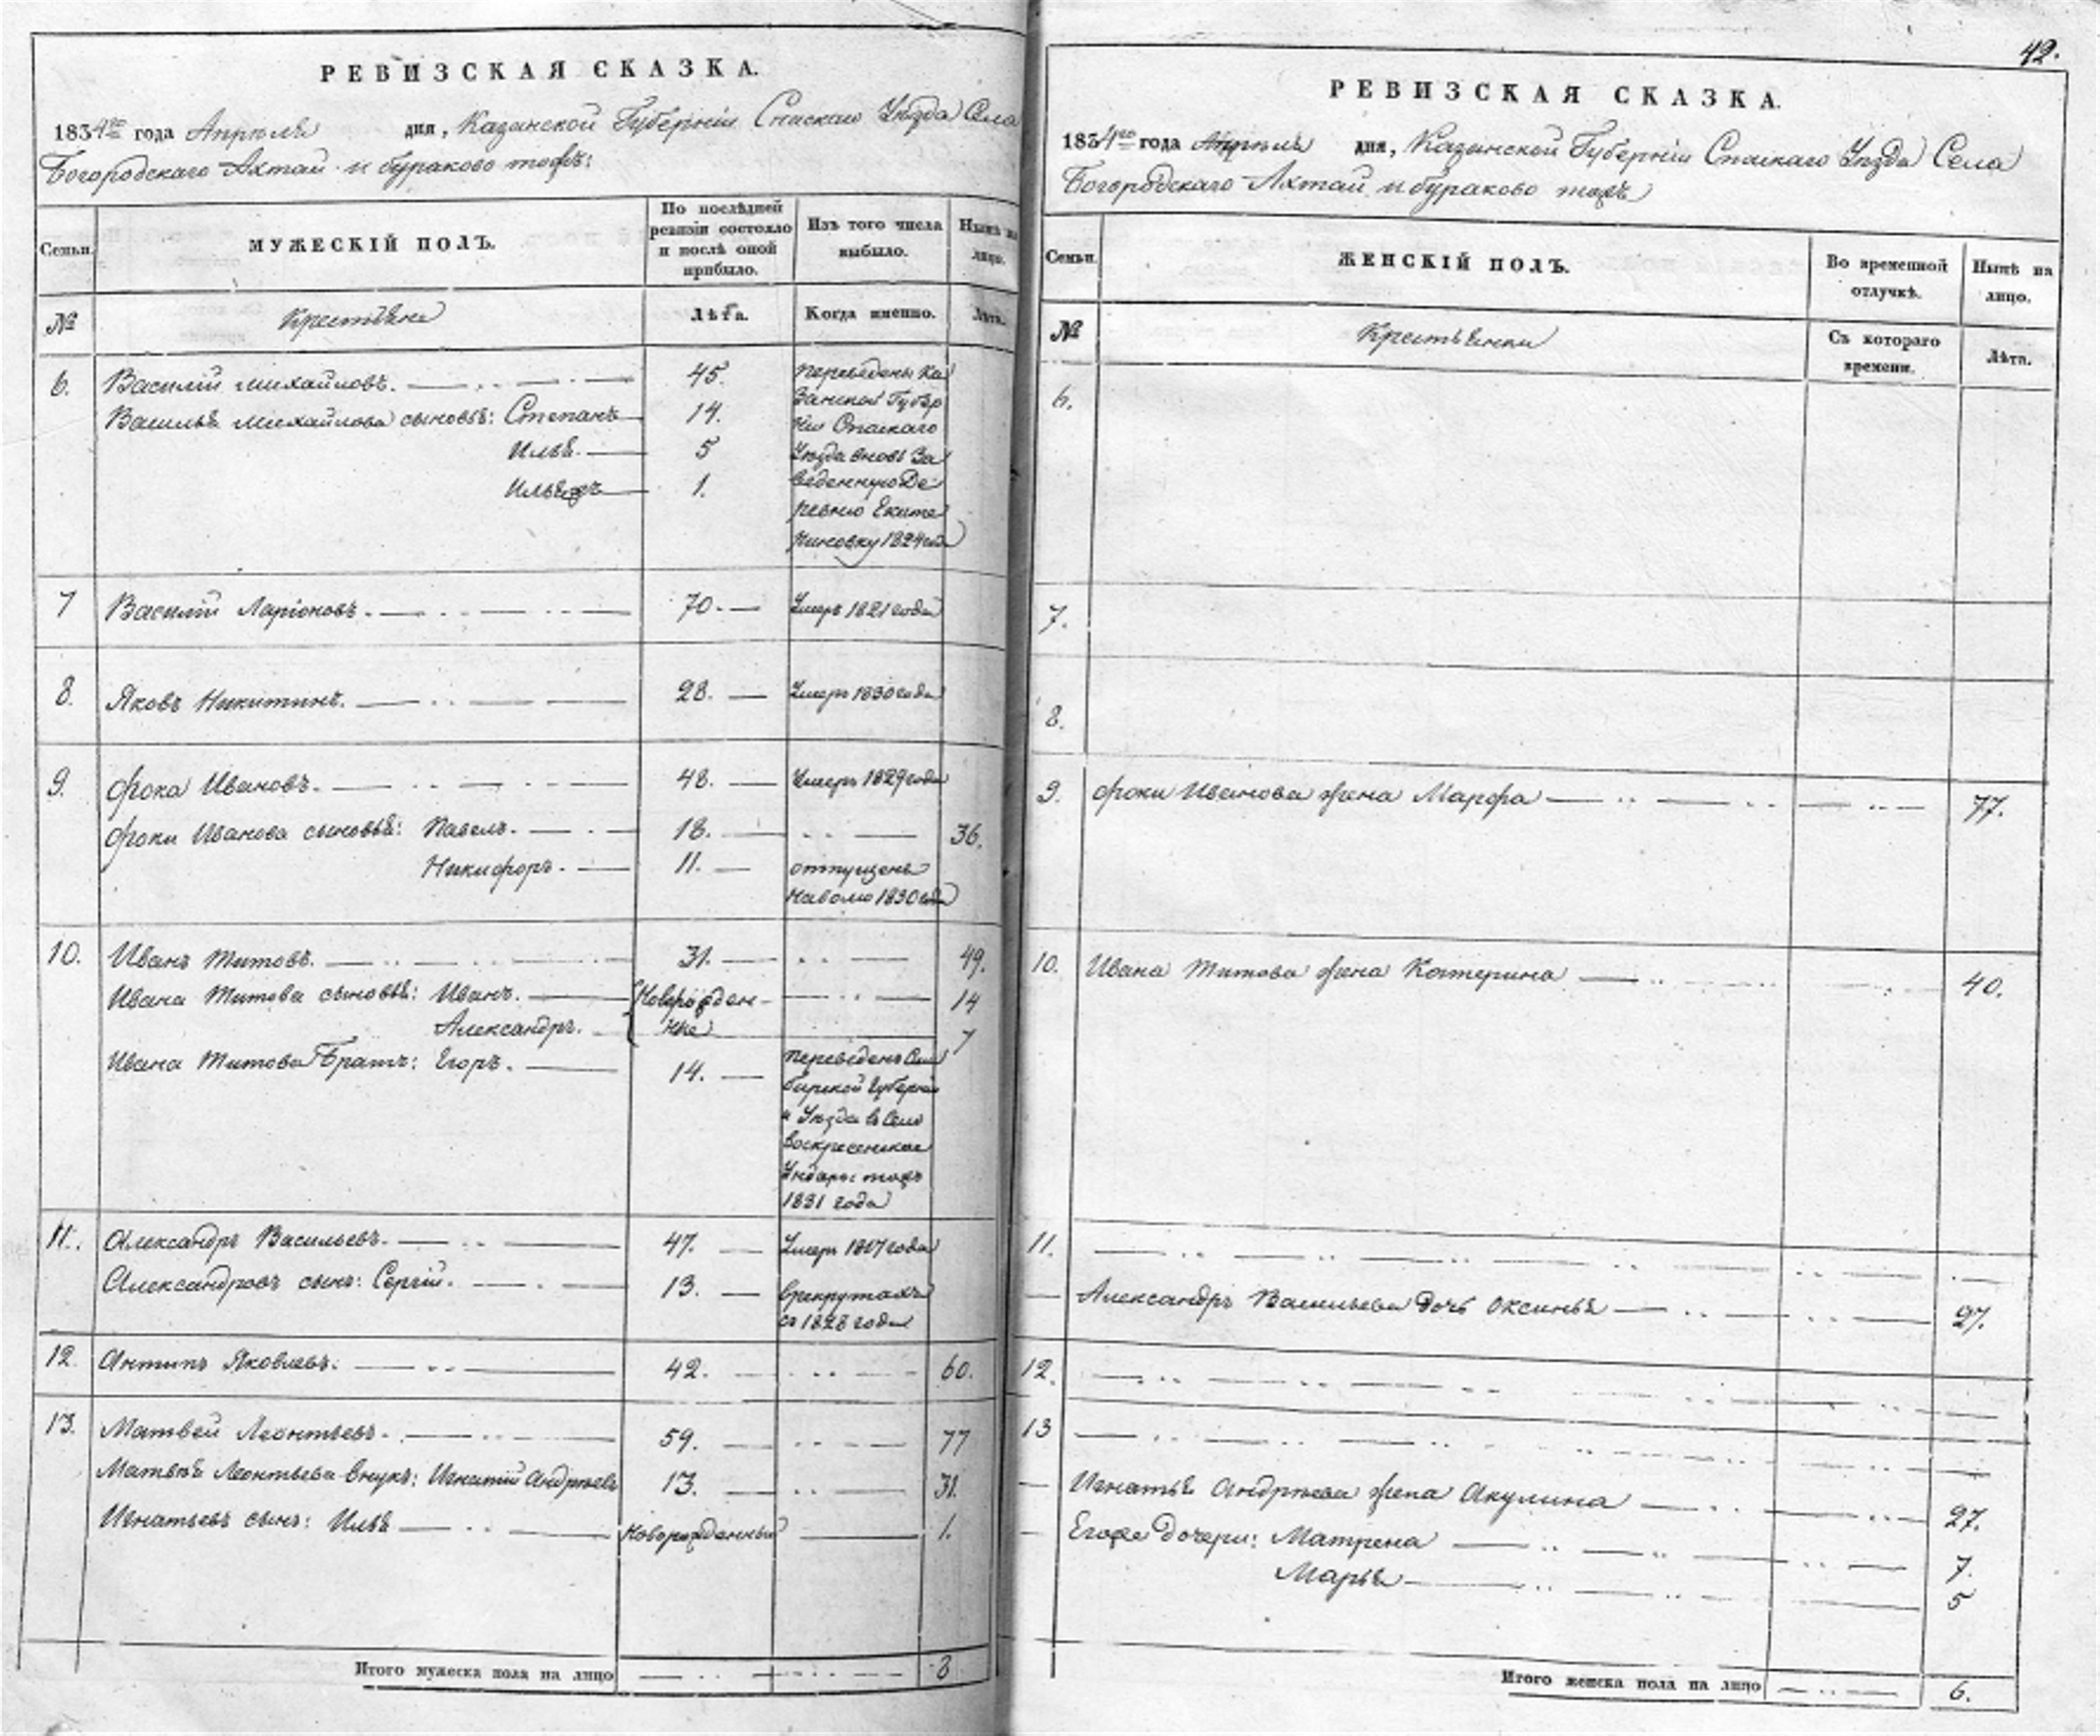 РЕВИЗСКАЯ СКАЗКА.
1834го года Апреля дня, Казанской Губернiи Спаскаго Уѣзда Села
Богородскаго Ахтай и бураково тожъ:
Семьи.
МУЖЕСКIЙ ПОЛЪ.
По послѣдней ревизiи состояло и послѣ оной прибыло.
Изъ того числа выбыло.
Нынѣ на лицо.
№
Крестьяне
Лѣта.
Когда именно.
Лѣта.
6. Василiй Михайловъ. 45. Переведены Ка
Василья Михайлова сыновья: Степанъ 14. занской Губер
нiи Спаскаго
Илья. 5 Уѣзда вновь за
Илья жъ 1. веденную де
ревню Екате
риновку 1824 года
7 Василiй Ларiоновъ. 70. Умеръ 1821 года
8. Яковъ Никитинъ. 28. Умеръ 1830 года
9. Фока Ивановъ. 48. Умеръ 1829 года
Фоки Иванова сыновья: Павелъ. 18. 36.
Никифоръ. 11. отпущенъ
на волю 1830 года
10. Иванъ Титовъ. 31. 49.
Ивана Титова сыновья: Иванъ. Новорожден- 14
Александръ. ные 7
Ивана Титова Братъ: Егоръ. 14. Переведенъ Сим
бирской Губернiи
и Уѣзда в Село
Воскресенское
Ундоры тожъ
1831 года
11. Александръ Васильевъ. 47. Умеръ 1817 года
Александровъ сынъ: Сергiй. 13. в рекрутахъ
съ 1828 года
12. Антипъ Яковлевъ. 42. 60.
13. Матвей Леонтьевъ. 59. 77
Матвея Леонтьева внукъ: Игнатiй Андреевъ 13. 31.
Игнатьевъ сынъ: Илья Новорожденный 1.
Итого мужеска пола на лицо 8
42.
РЕВИЗСКАЯ СКАЗКА.
1834го года Апреля дня, Казанской Губернiи Спаскаго Уѣзда Села
Богородскаго Ахтай и бураково тожъ
Семьи.
ЖЕНСКIЙ ПОЛЪ.
Во временной отлучкѣ.
Нынѣ на лицо.
№
Крестьянки
Съ котораго времени.
Лѣта.
6.
7.
8.
9. Фоки Иванова жена Марфа 77.
10. Ивана Титова жена Катерина 40.
11.
Александръ Васильева дочь Оксинья 27.
12.
13
Игнатья Андреева жена Акулина 27.
Егоже дочери: Матрена 7.
Марья 5
Итого женска пола на лицо 6.